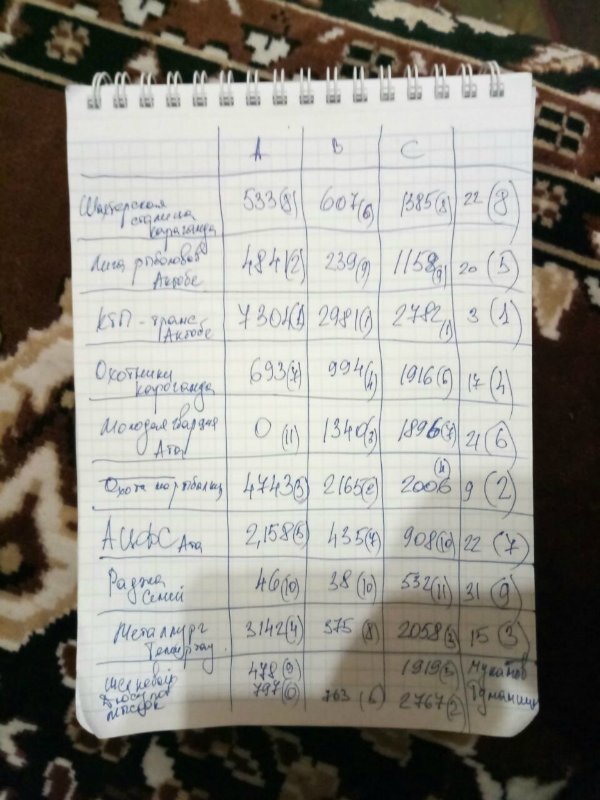 A B C
Шахтерская 533(8) 607(6) 1385(8) 22 (8)
столица
Караганда
Лига рыболовов 4841(2) 239(9) 1158(9) 20 (5)
Актобе
КТП - транс 7304(1) 2981(1) 2782(1) 3 (1)
Актобе
Охотники 693(7) 994(4) 1916(6) 17 (4)
Караганда
Молодая Гвардия 0 (11) 1340(3) 1896(7) 21 (6)
Ата
Охота и рыбалка 4743(3) 2165(2) 2006(4) 9 (2)
АЦФС Ата 2,158(5) 435(7) 908(10) 22 (7)
Раджа 46(10) 38 (10) 532(11) 31 (9)
Семей
Металлург 3142(4) 375 (8) 2058(3) 15 (3)
Темиртау
478(9) 1919(5)
797(6) 763 (5) 2767(2)